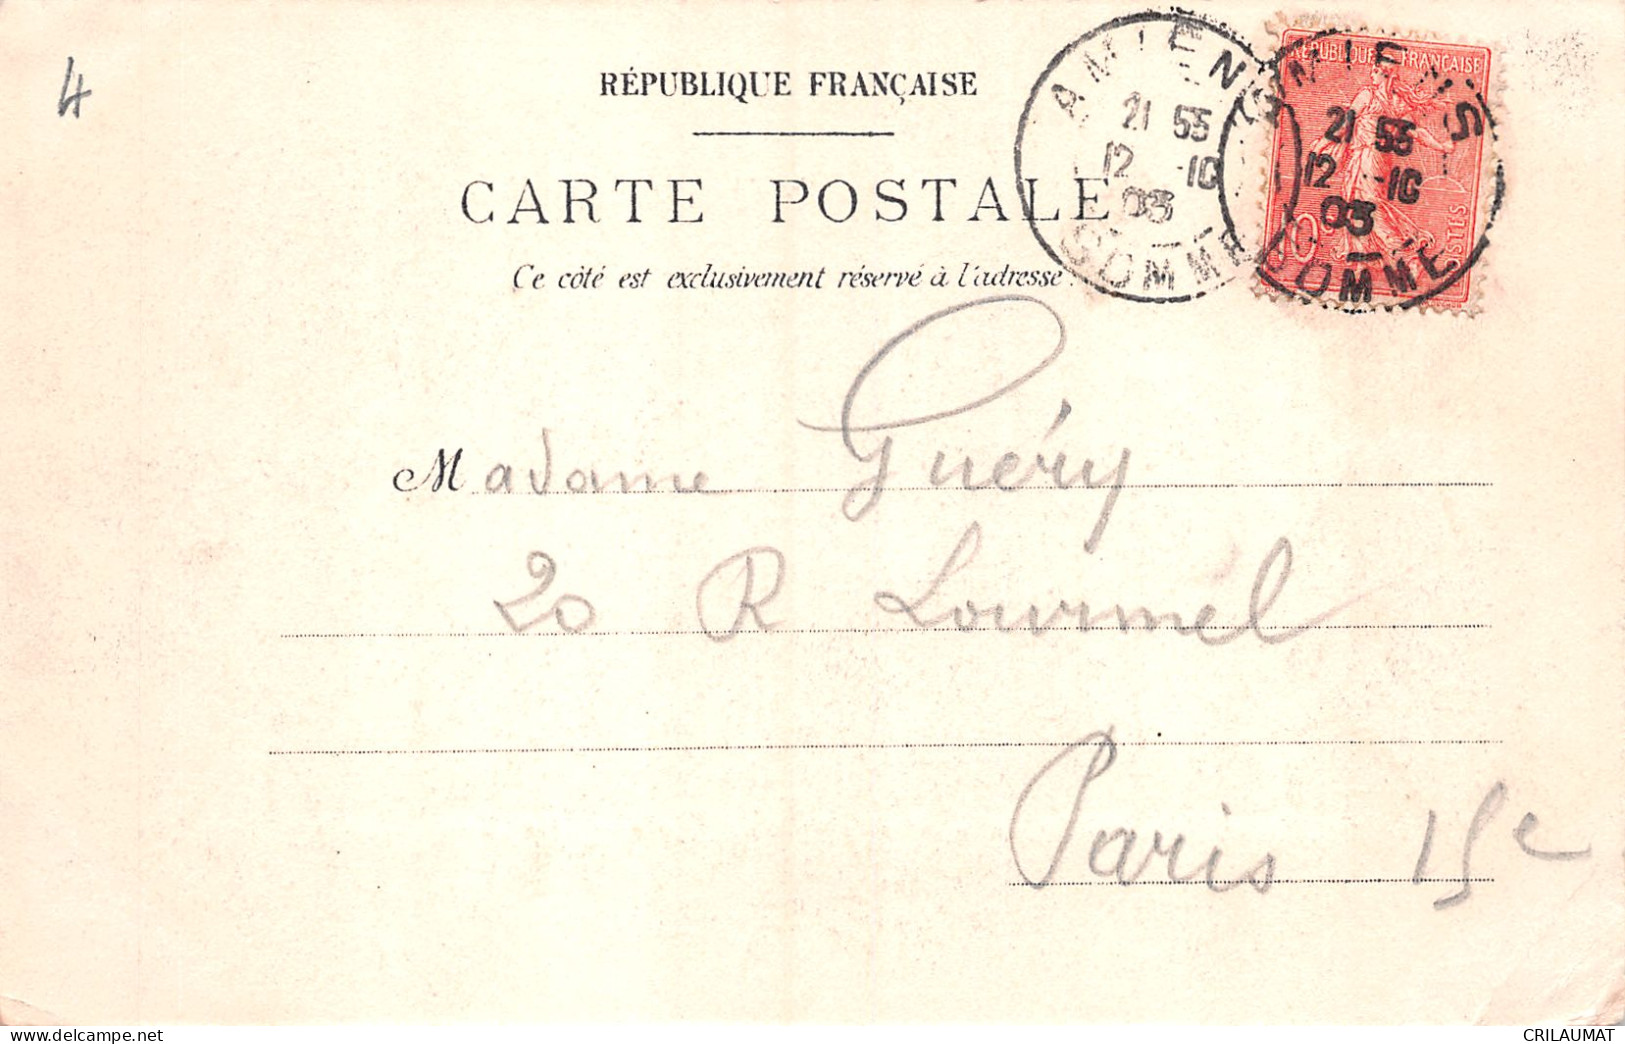 4
RÉPUBLIQUE FRANÇAISE
CARTE POSTALE
Ce côté est exclusivement réservé à l'adresse.
AMIENS
21 55
12 -10
03
SOMME
RÉPUBLIQUE FRANÇAISE
10c
POSTES
AMIENS
21 55
12 -10
03
SOMME
Madame Guéry
20 R Lourmel
Paris 15e
www.delcampe.net
CRILAUMAT